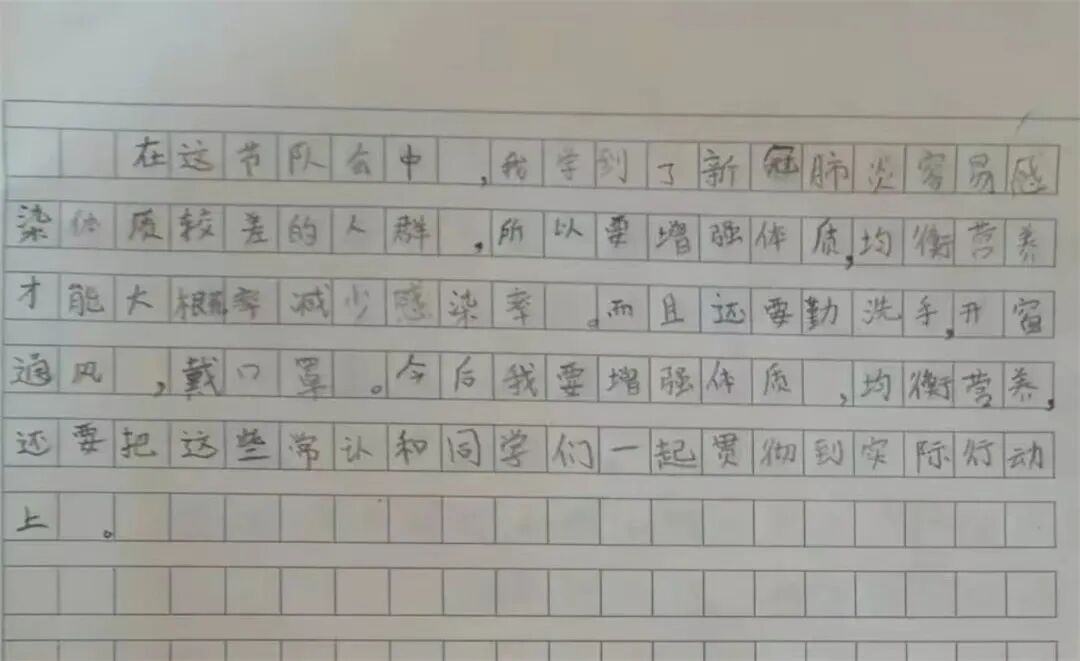 在这节队会中,我学到了新冠肺炎容易感
染体质较差的人群,所以要增强体质,均衡营养
才能大概率减少感染率。而且还要勤洗手,开窗
通风,戴口罩。今后我要增强体质,均衡营养,
还要把这些常认和同学们一起贯彻到实际行动
上。